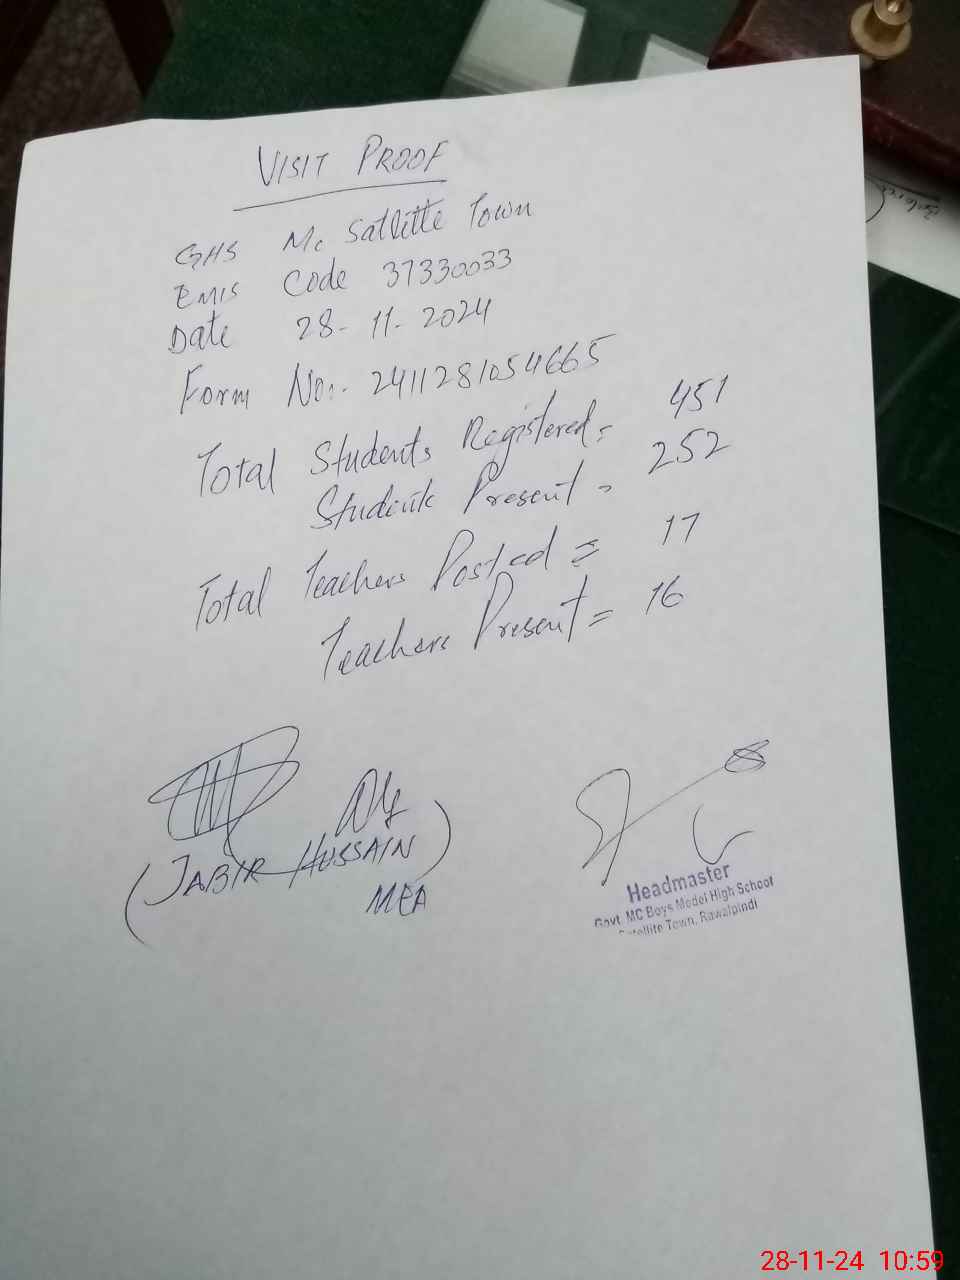 VISIT PROOF
GHS Mc Satlitte Town
EMIS Code 37330033
Date 28-11-2024
Form No:- 2411281054665
Total Students Registered = 451
Students Present = 252
Total Teachers Posted = 17
Teachers Present = 16
(JABIR HUSSAIN)
MEA
Headmaster
Govt. MC Boys Model High School
Satellite Town, Rawalpindi
28-11-24 10:59